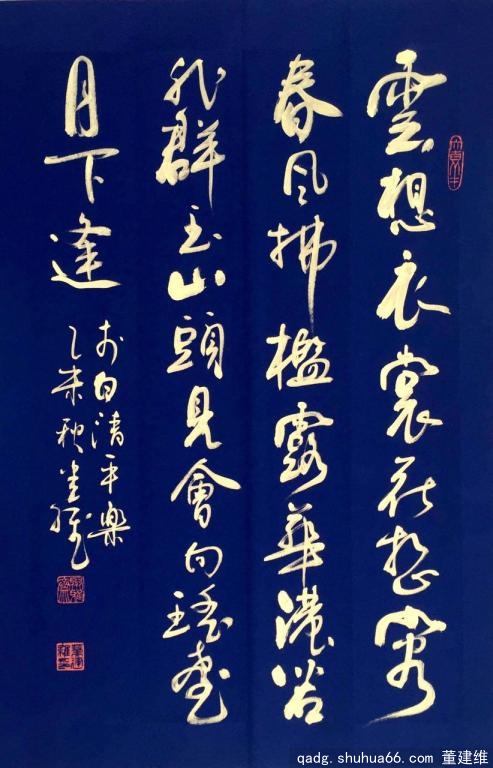 雲想衣裳花想容
春風拂檻露華濃若
非群玉山頭見會向瑤臺
月下逢
李白清平樂
乙未秋建維
qadg.shuhua66.com 董建维